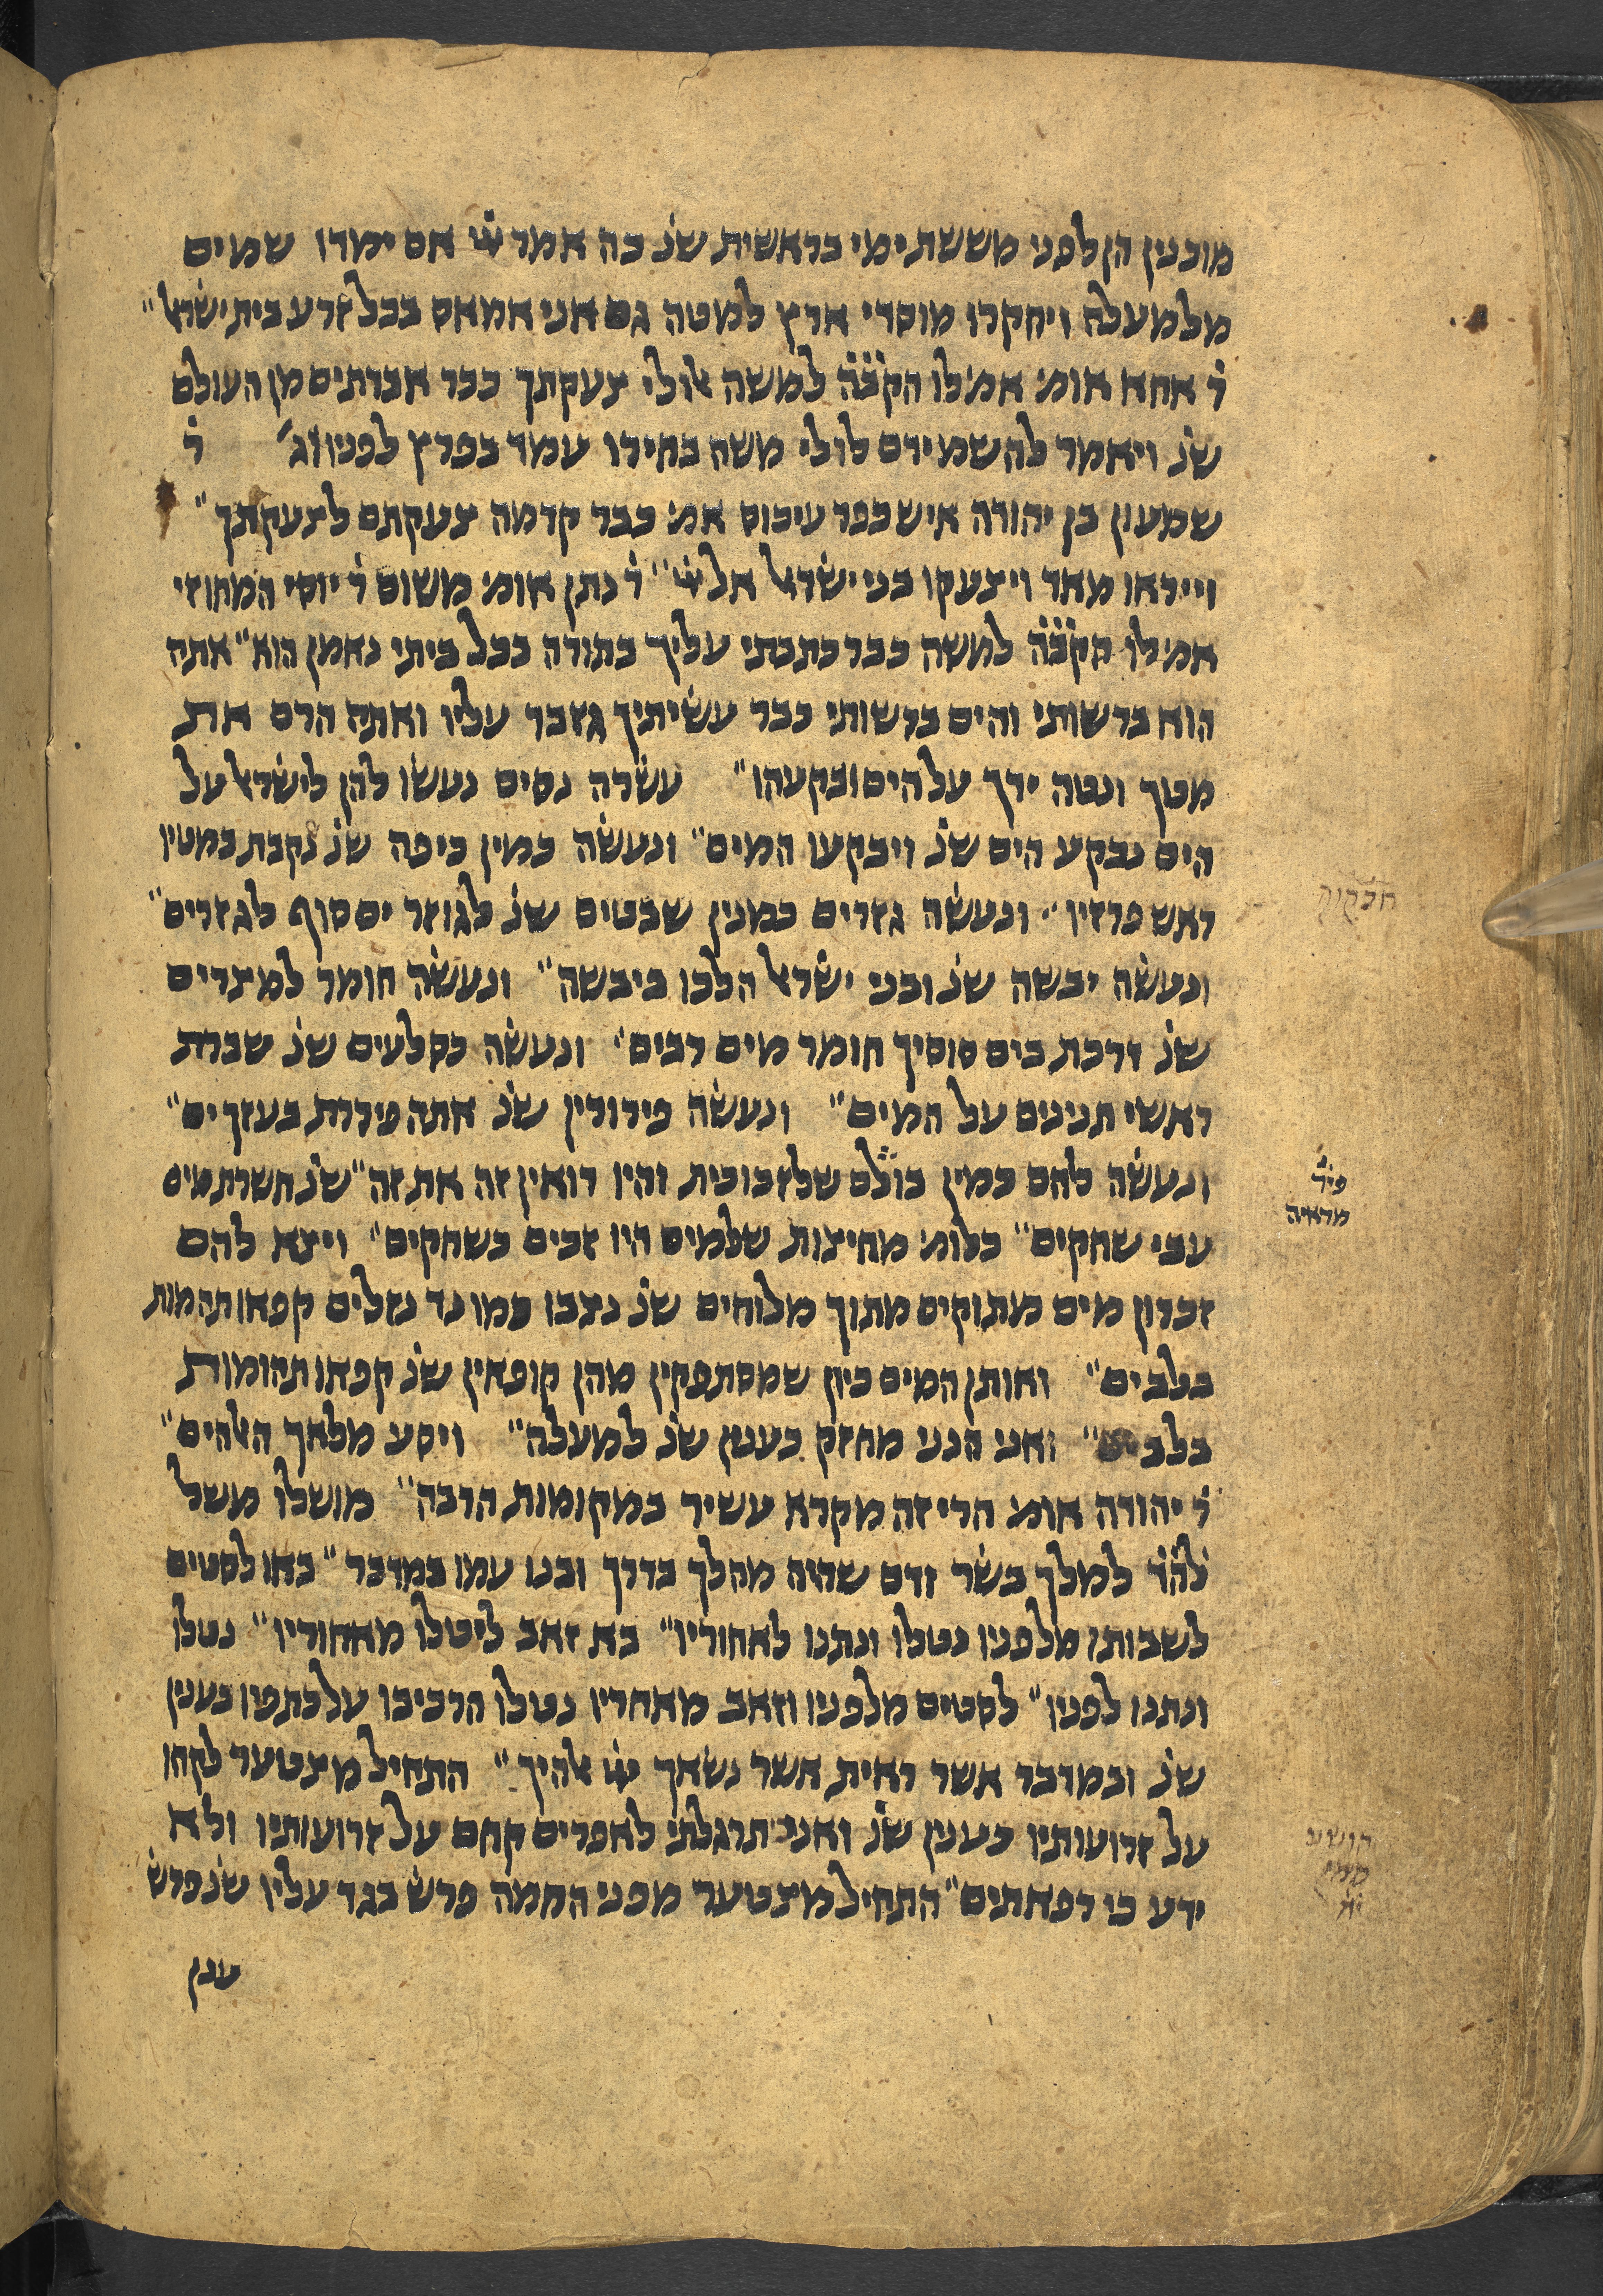 מוכנין הן לפני מששת ימי בראשית שנ׳ כה אמר יי׳ אם ימדו שמים
מלמעלה ויחקרו מוסדי ארץ למטה גם אני אמאס בכל זרע בית ישראל״
ר׳ אחא אומ׳ אמ׳ לו הקב״ה למשה אולי צעקתך כבר אבדתים מן העולם
שנ׳ ויאמר להשמידם לולי משה בחירו עמד בפרץ לפניו וג׳ ר׳
שמעון בן יהודה איש כפר עיכוס אמ׳ כבר קדמה צעקתם לצעקתך״
וייראו מאד ויצעקו בני ישראל אל יי׳״ ר׳ נתן אומ׳ משום ר׳ יוסי המחוזי
אמ׳ לו הקב״ה למשה כבר כתבתי עליך בתורה בכל ביתי נאמן הוא״ אתה
הוא ברשותי והים ברשותי כבר עשיתיך גזבר עליו ואתה הרם את
מטך ונטה ידך על הים ובקעהו״ עשרה נסים נעשו להן לישראל על
הים נבקע הים שנ׳ ויבקעו המים״ ונעשה כמין כיפה שנ׳ נקבת במטיו
ראש פרזיו״ ונעשה גזרים כמנין שבטים שנ׳ לגוזר ים סוף לגזרים״
ונעשה יבשה שנ׳ ובני ישראל הלכו ביבשה״ ונעשה חומר למצרים
שנ׳ דרכת בים סוסיך חומר מים רבים׳ ונעשה כסלעים שנ׳ שברת
ראשי תנינים על המים״ ונעשה פירורין שנ׳ אתה פיררת בעזך ים״
ונעשה להם כמין כולם שלזכוכית והיו רואין זה את זה״ שנ׳ חשרת מים
עבי שחקים״ כלומ׳ מחיצות שלמים היו זכים כשחקים״ ויצא להם
זכרון מים מתוקים מתוך מלוחים שנ׳ נצבו כמו נד נזלים קפאו תהמות
בלב ים״ ואותן המים כיון שמסתפקין מהן קופאין שנ׳ קפאו תהומות
בלב ים״ ואני הנני מחזק כענין שנ׳ למעלה״ ויסע מלאך האלהים״
ר׳ יהודה אומ׳ הרי זה מקרא עשיר במקומות הרבה״ מושלו משל
לה״ד למלך בשר ודם שהיה מהלך בדרך ובנו עמו במדבר״ באו לסטים
לשבותו מלפניו נטלו ונתנו לאחוריו״ בא זאב ליטלו מאחוריו״ נטלו
ונתנו לפניו״ לסטים מלפניו וזאב מאחריו נטלו הרכיבו על כתפיו כענין
שנ׳ ובמדבר אשר ראית אשר נשאך יי׳ אלהיך״ התחיל מצטער לקחו
על זרועותיו כענין שנ׳ ואנכי תרגלתי לאפרים קחם על זרועותיו ולא
ידע כי רפאתים״ התחיל מצטער מפני החמה פרש בגד עליו שנ׳ פרש
ענן
חבקוק
פיר׳
מראיה
הושע